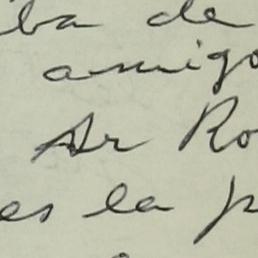 ba de
amigo
Sr Ro
es la p